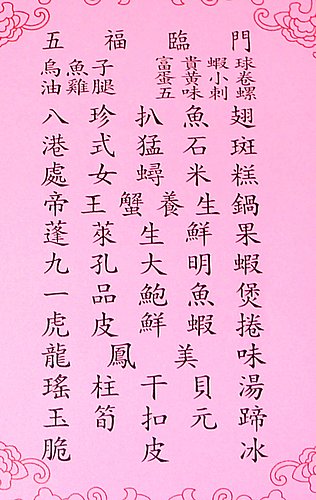 五福臨門
烏魚子
油雞腿
富貴蝦球
蛋黃小卷
五味刺螺
八珍扒魚翅
港式猛石斑
處女蟳米糕
帝王蟹養生鍋
蓬萊生鮮果
九孔大明蝦
一品鮑魚煲
虎皮鮮蝦捲
龍鳳美味
瑤柱干貝湯
玉筍扣元蹄
脆皮冰